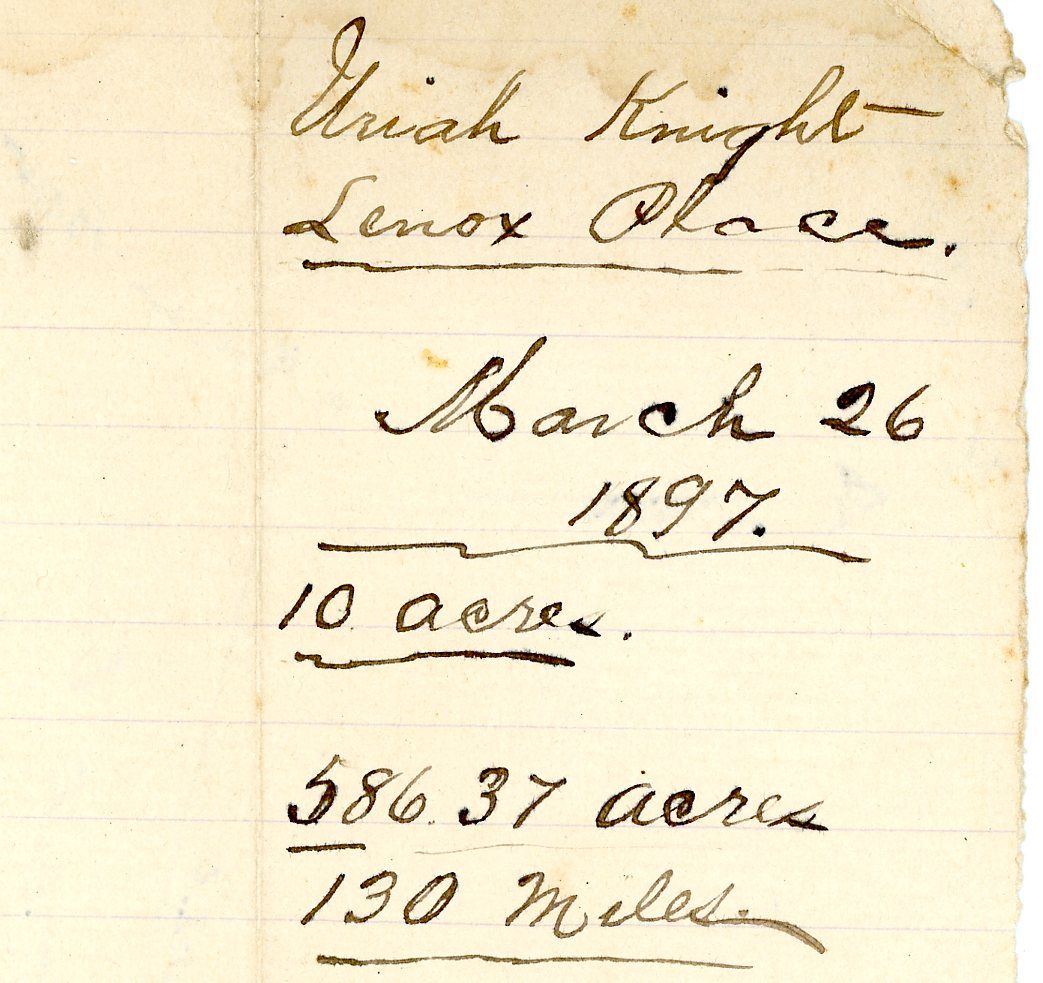 Uriah Knight
Lenox Place.
March 26
1897.
10 acres.
586.37 acres
130 Miles.